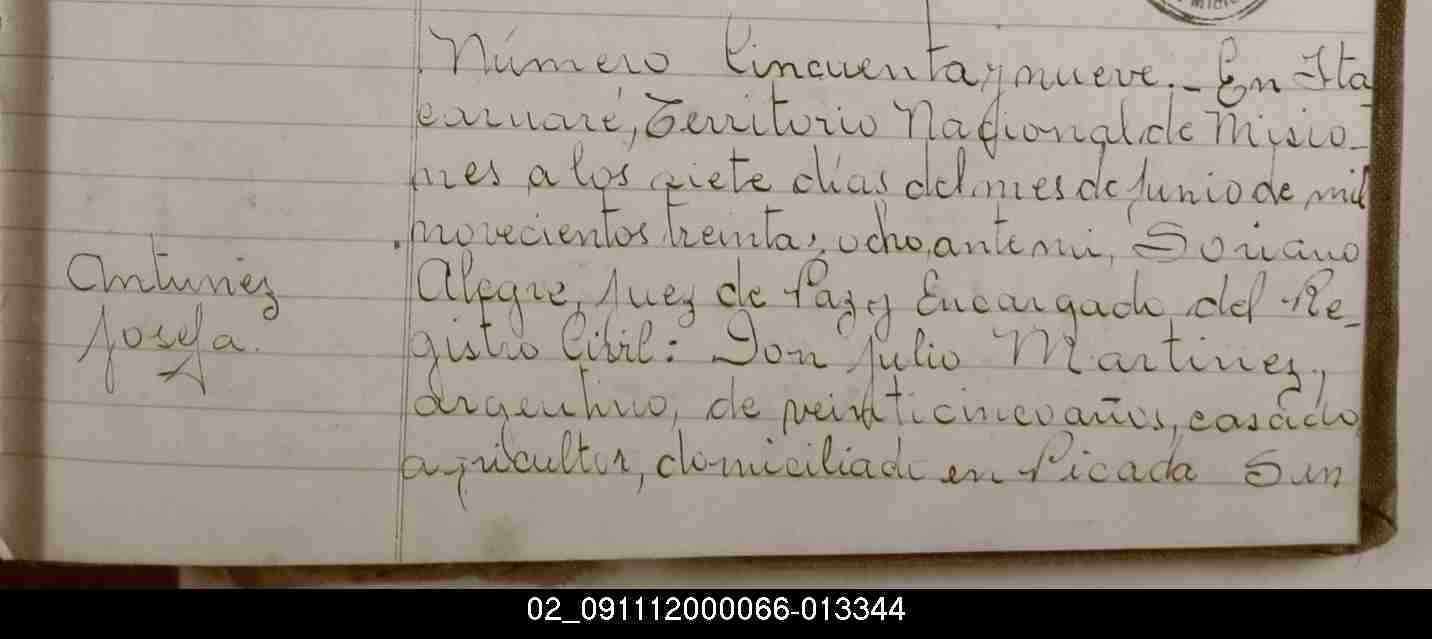 Número Cincuenta y nueve._ En Ita
caruaré, Territorio Nacional de Misio_
nes a los siete días del mes de Junio de mil
novecientos treinta y ocho, ante mi, Soriano
Antunez
Alegre, Juez de Paz y Encargado del Re_
Josefa.
gistro Civil: Don Julio Martinez,
argentino, de veinticinco años, casado
agricultor, domiciliado en Picada Sun
02_091112000066-013344